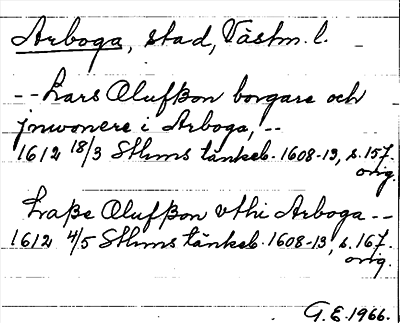 Arboga, stad, Västm. l.
-- Lars Olufßon borgare och
jnwonere i Arboga, --
1612 18/3 Sthms tänkeb. 1608-13, s. 157.
orig.
Laße Olufßon vthi Arboga --
1612 4/5 Sthms tänkeb. 1608-13, s. 167.
orig.
G.E. 1966.